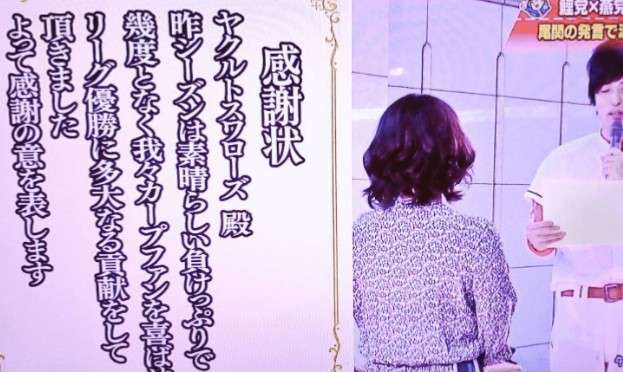 感謝状
ヤクルトスワローズ 殿
昨シーズンは素晴らしい負けっぷりで
幾度となく我々カープファンを喜ば
リーグ優勝に多大なる貢献をして
頂きました
よって感謝の意を表します
鯉党×燕党
尾関の発言で